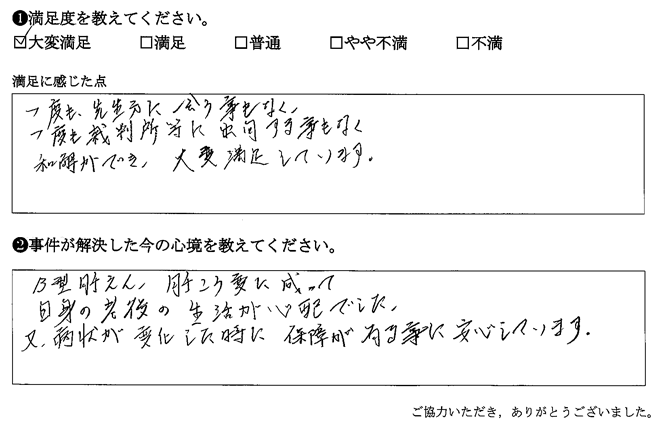 ❶満足度を教えてください。
☑大変満足 □満足 □普通 □やや不満 □不満
満足に感じた点
一度も、先生方に会う事もなく、
一度も裁判所等に出向する事もなく
和解ができ、大変満足しています。
❷事件が解決した今の心境を教えてください。
B型肝えん、肝こう変に成って
自身の老後の生活が心配でした、
又、病状が変化した時に保障が有る事に安心しています。
ご協力いただき，ありがとうございました。